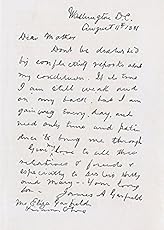 Washington D.C.
August 11th 1881
Dear Mother
Don't be disturbed
by conflicting reports about
my condition. It is true
I am still weak and
on my back, but I am
gaining every day and
need only time and patience
to bring me through
Give my love to all the
relatives & friends &
especially to sisters Hitty
and Mary - Your loving
son - James A Garfield
Mrs Eliza Garfield
Ohio